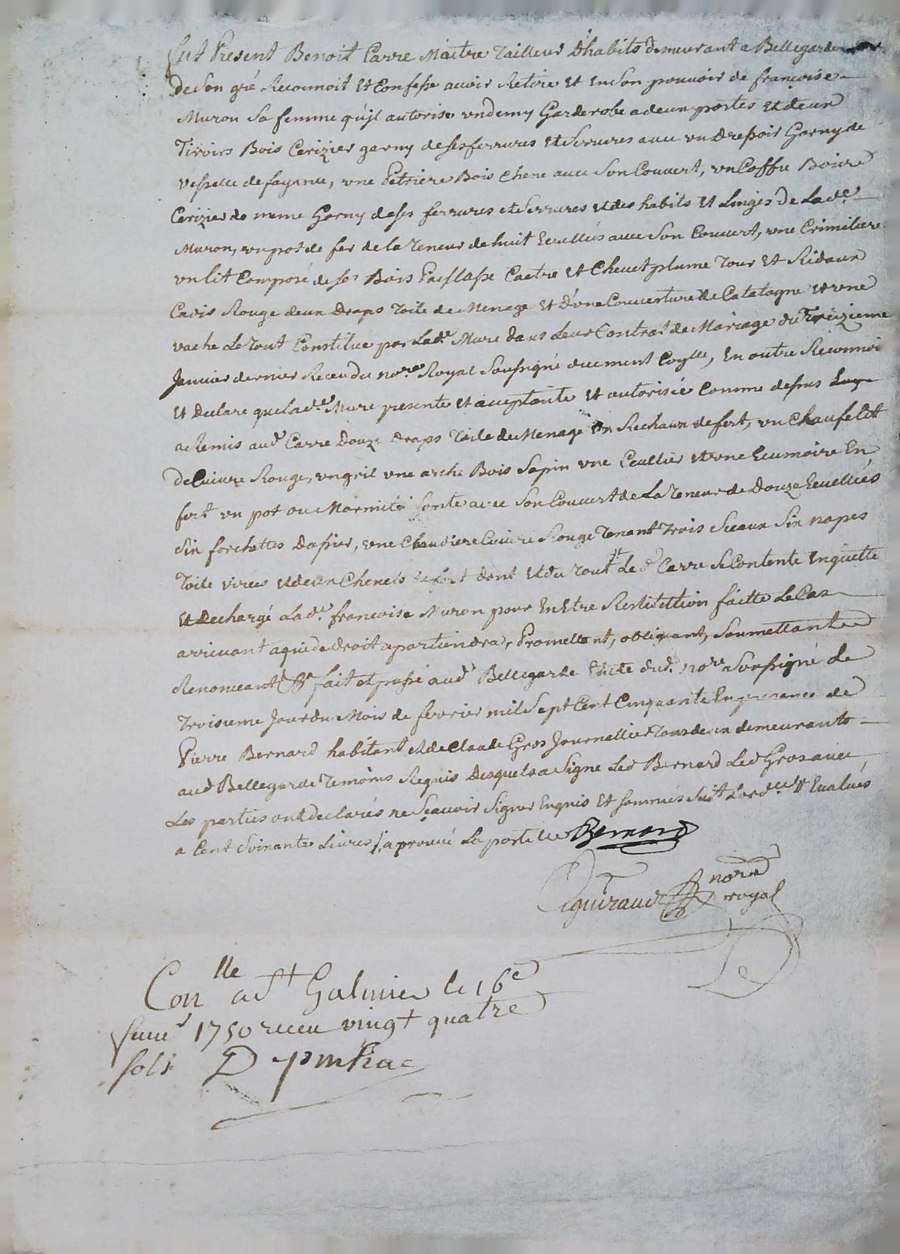 fut Present Benoit Carre Maitre Tailleur D'habits demeurant a Bellegarde
de Son gré Reconnoit Et Confesse avoir Retire Et En Son pouvoir de françoise
Muron Sa femme qu'il autorise un demy Garderobe a deux portes Et deux
Tiroirs Bois Cerizier garny de ses ferrures et Serrures avec un Dressoir Garny de
vesselle de fayance, une Petriere Bois Chene avec Son Couvert, un Coffre Bois de
Cerizier de meme Garny de ses ferrures et Serrures et des habits Et Linges de La de.
Muron, un pot de fer de la Teneur de huit Ecuellés avec Son Couvert, une Crimiliere
un lit Composé de ses Bois Paillasse Caetre et Chevet plume Tour Et Rideaux
Cadis Rouge deux draps Toile de Menage Et D'une Couverture de Catalogne et une
vache Le tout Constitue par Lade. Mure dans Leur Contrat de Mariage du Treizieme
Janvier dernier Receu du nore. Royal Soussigné duement Conlle, En outre Reconnoi
Et Declare que Lade. Mure presente et aceptante et autorisée Comme dessus Luy
a Remis aud. Carre Douze draps Toile de Menage un Rechaux de fert, un Chaufelit
de Cuivre Rouge, un gril une arche Bois Sapin une Ceullier et une Ecumoire En
fert un pot ou Marmite fonte avec Son Couvert de La Teneur de Douze Ecuellés
Six forchettes Dassier, une Chaudiere Cuivre Rouge Tenant Trois Seaux Six napes
Toile et deux Chenets de fert dont Et du Tout Le d. Carre Se Contente En quitte
Et Dechargé Lade. françoise Muron pour En Etre Restitution faitte Le Cas
arrivant a qui de Droit apartiendra, Promettant, obligeant, Soumettant
Renonceant fait et passé aud. Bellegarde Etude dud. nore Soussigné Le
Troisieme Jour du Mois de fevrier mil Sept Cent Cinquante En presence de
Pierre Bernard habitant et de Claude Gros Journallier Tous deux demeurants
aud Bellegarde Temoins Requis Desquels a Signe Led Bernard Led Gros avec
Les parties ont declarés ne Scavoir Signer Enquis Et Sommés Evalués
a Cent Soixante Livres aprouvé
Bernard
nore
royal
Conlle a St Galmier le 16e
fevrier 1750 receu vingt quatre
sols